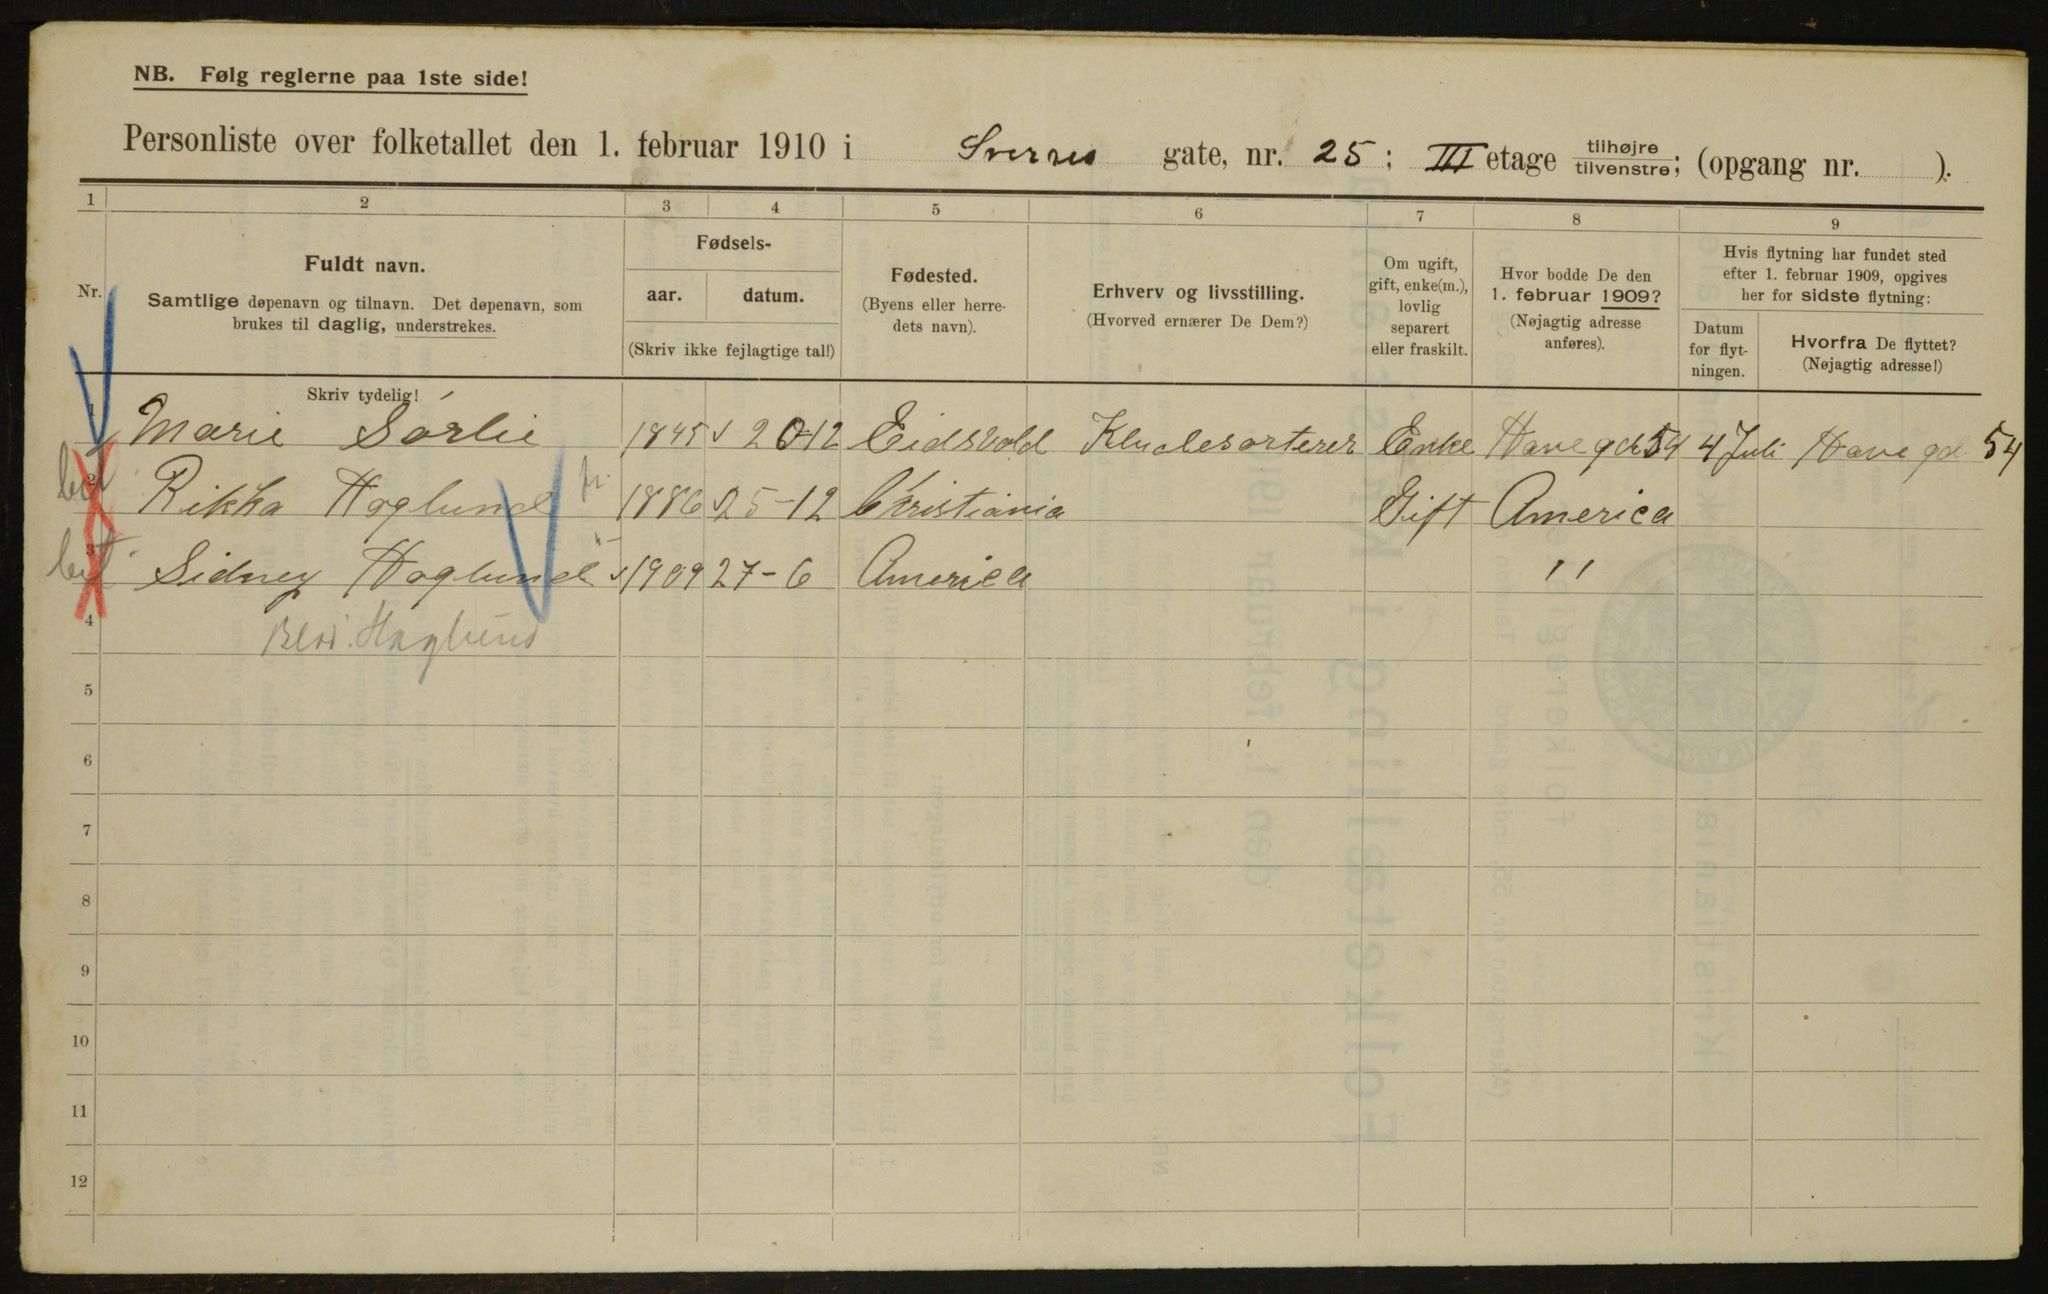 NB. Følg reglerne paa 1ste side!
Personliste over folketallet den 1. februar 1910 i Sverres gate, nr. 25; III etage tilhøjre/tilvenstre; (opgang nr. ).
1 2 3 4 5 6 7 8 9
Nr.
Fuldt navn.
Samtlige døpenavn og tilnavn. Det døpenavn, som
brukes til daglig, understrekes.
Skriv tydelig!
Fødsels-
aar. datum.
(Skriv ikke fejlagtige tal!)
Fødested.
(Byens eller herre-
dets navn).
Erhverv og livsstilling.
(Hvorved ernærer De Dem?)
Om ugift,
gift, enke(m.),
lovlig
separert
eller fraskilt.
Hvor bodde De den
1. februar 1909?
(Nøjagtig adresse
anføres).
Hvis flytning har fundet sted
efter 1. februar 1909, opgives
her for sidste flytning:
Datum
for flyt-
ningen.
Hvorfra De flyttet?
(Nøjagtig adresse!)
1 Marie Sørlie 1845 20-12 Eidsvold Kludesorterer Enke Have gd 54 4 Juli Have gd 54
2 Rikka Hoglund fr. 1886 25-12 Christiania Gift America
3 Sidney Hoglund 1909 27-6 America "
4
Haglund
5
6
7
8
9
10
11
12